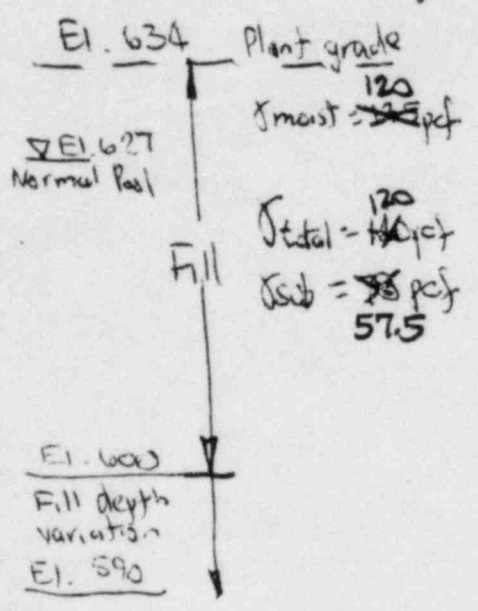 El. 634 Plant grade
120
γmoist = pcf
▽ El. 627
Normal Pool
120
γtotal = pcf
Fill
γsub = pcf
57.5
El. 600
Fill depth
variation
El. 590